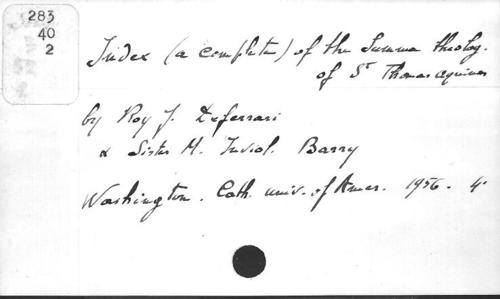 283
40
2
Index (a complete) of the Summa theolog.
of St Thomas Aquinas
by Roy J. Deferrari
& Sister M. Inviol. Barry
Washington. Cath. univ. of Amer. 1956. 4°